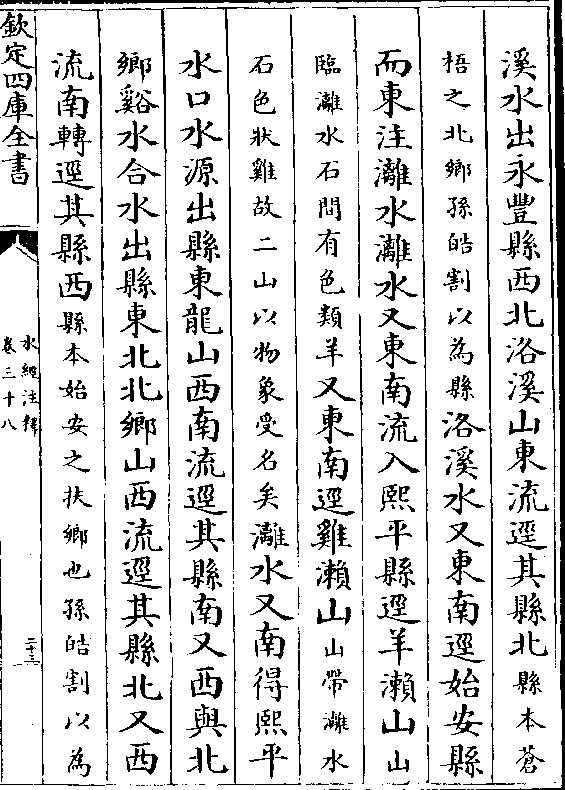 溪水出永豐縣西北洛溪山東流逕其縣北縣本蒼
梧之北鄉孫皓割以為縣洛溪水又東南逕始安縣
而東注灕水灕水又東南流入熙平縣逕羊瀨山山
臨灕水石間有色類羊又東南逕雞瀨山山帶灕水
石色狀雞故二山以物象受名矣灕水又南得熙平
水口水源出縣東龍山西南流逕其縣南又西與北
鄉谿水合水出縣東北北鄉山西流逕其縣北又西
流南轉逕其縣西縣本始安之扶鄉也孫皓割以為
欽定四庫全書
水經注釋
卷三十八
二十三